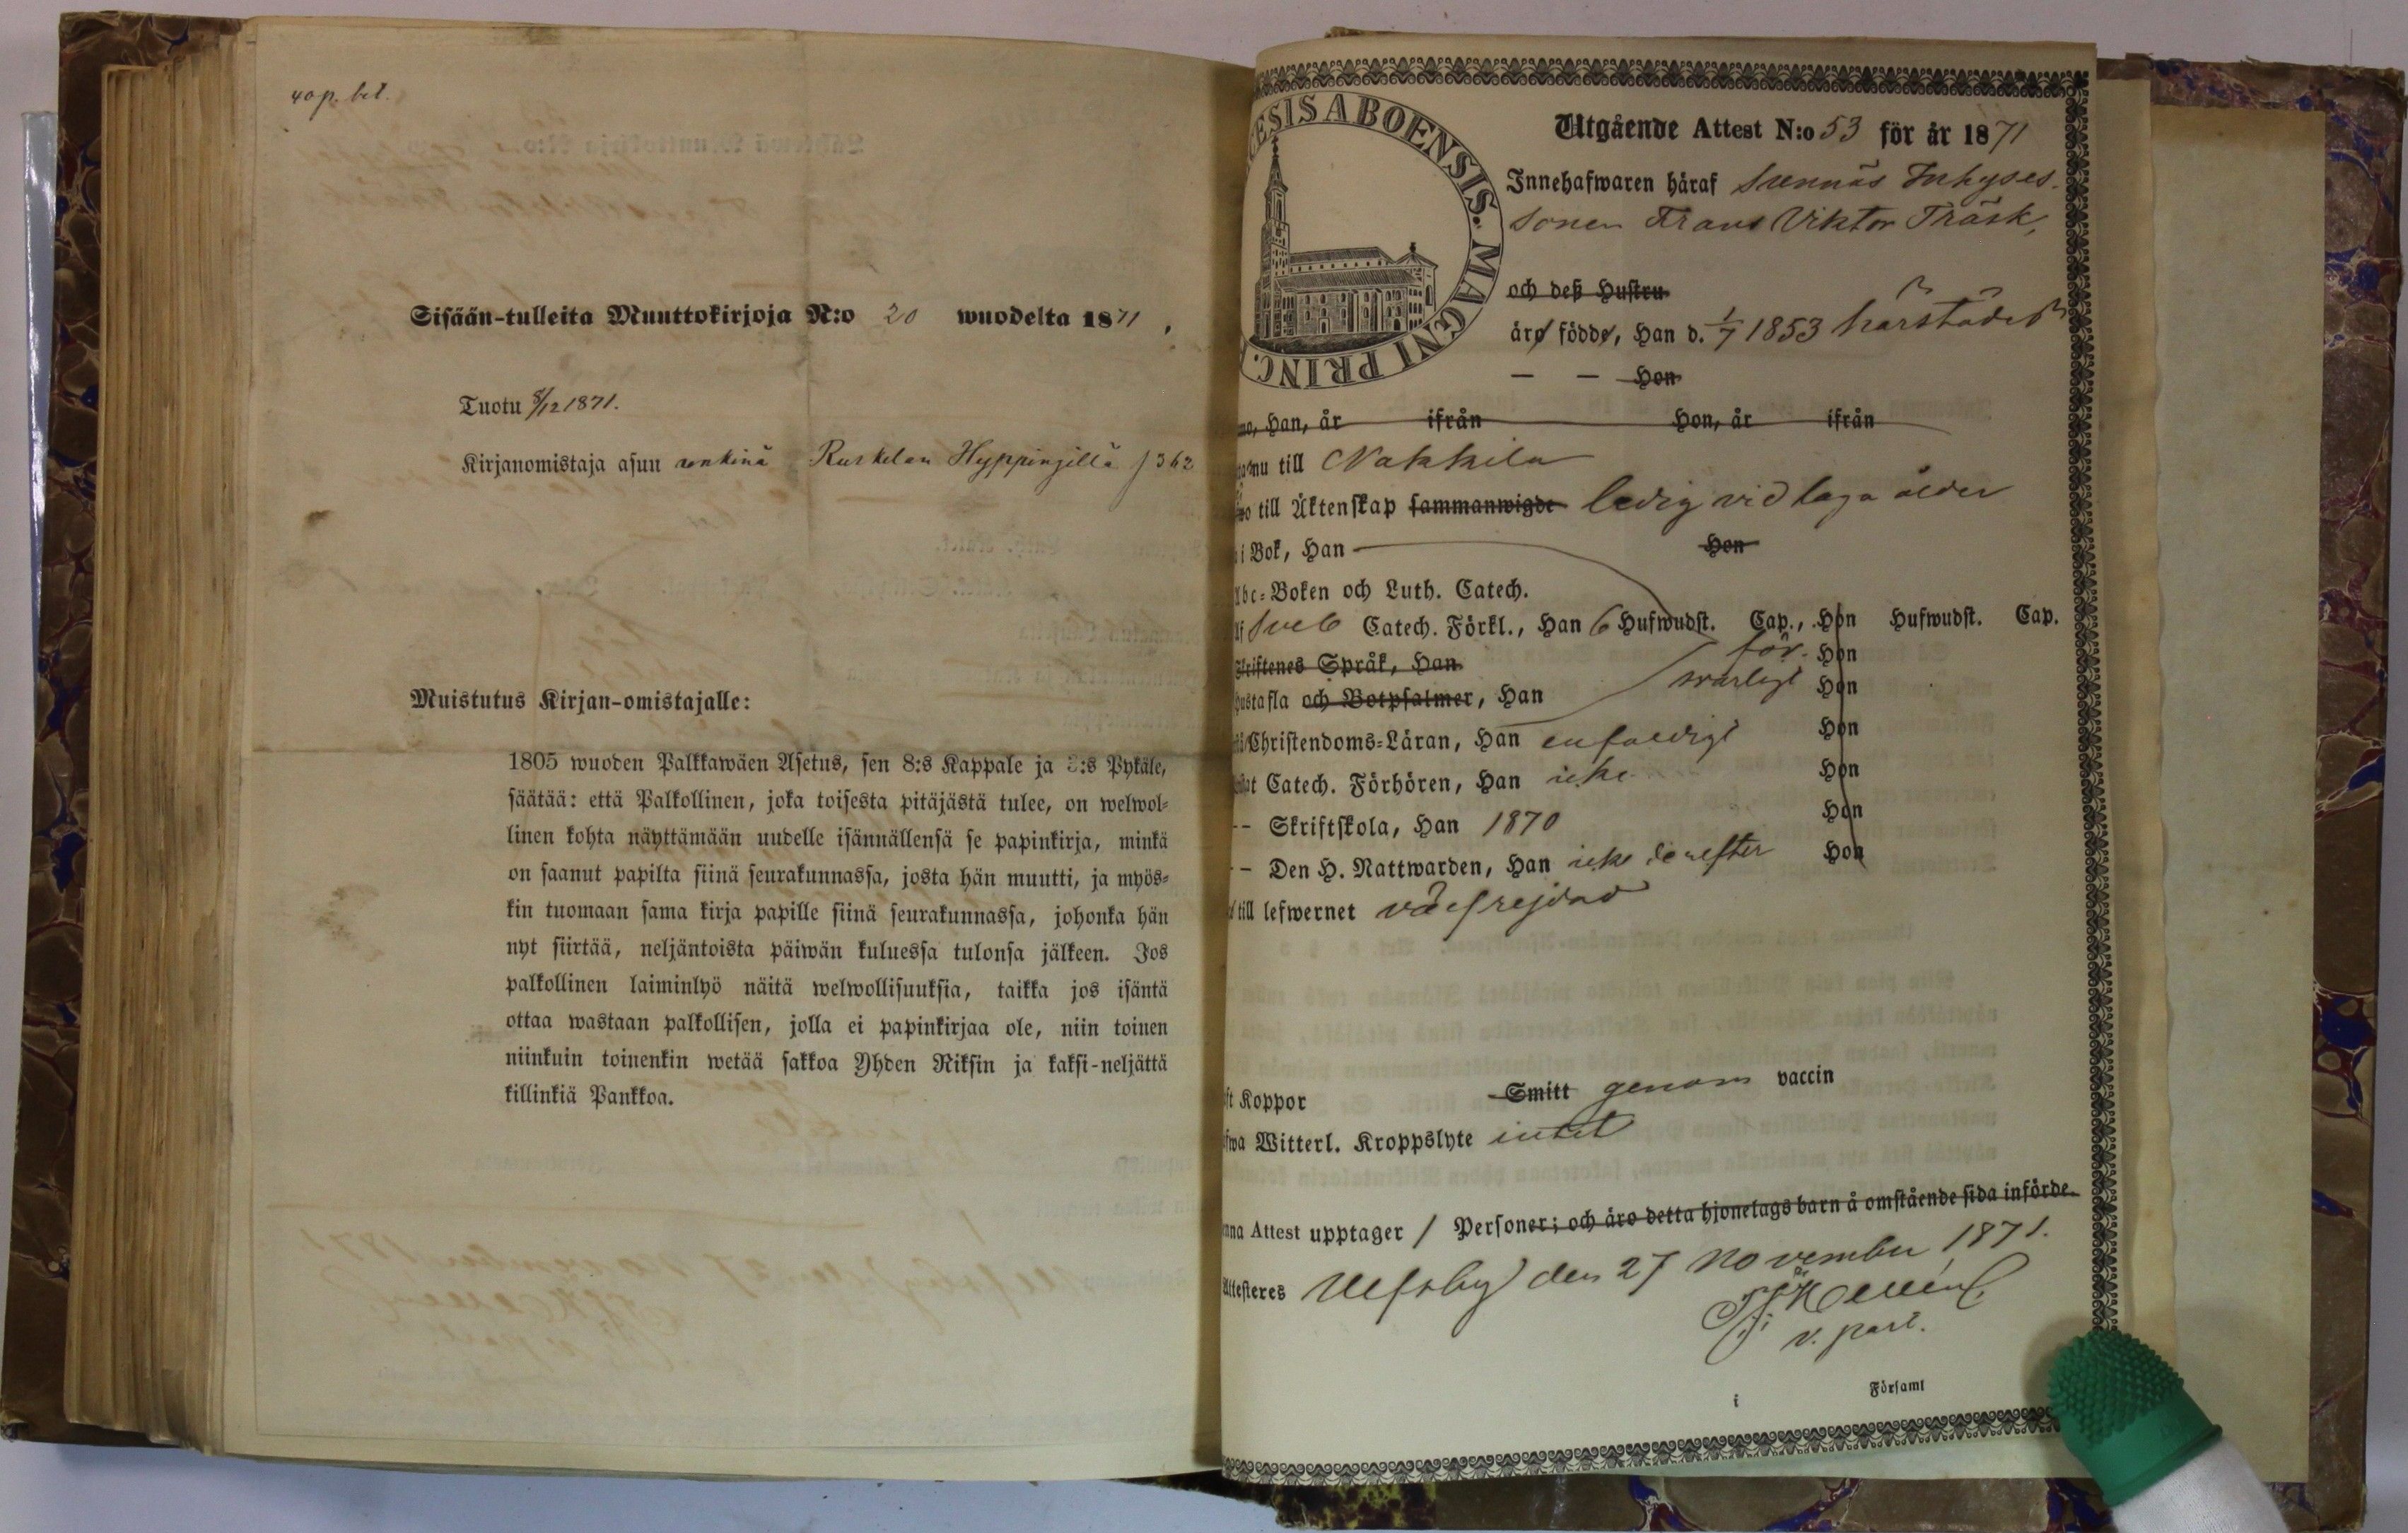 40 p. bet.
Sisään-tulleita Muuttokirjoja N:o 20 wuodelta 1871.
Tuotu 8/12 1871.
Kirjanomistaja asuu renkinä Ruskelan Hyppingillä f 362
Muistutus Kirjan-omistajalle:
1805 wuoden Palkkawäen Asetus, sen 8:s Kappale ja 3:s Pykäle,
säätää: että Palkollinen, joka toisesta pitäjästä tulee, on welwol=
linen kohta näyttämään uudelle isännällensä se papinkirja, minkä
on saanut papilta siinä seurakunnassa, josta hän muutti, ja myös=
kin tuomaan sama kirja papille siinä seurakunnassa, johonka hän
nyt siirtää, neljäntoista päiwän kuluessa tulonsa jälkeen. Jos
palkollinen laiminlyö näitä welwollisuuksia, taikka jos isäntä
ottaa wastaan palkollisen, jolla ei papinkirjaa ole, niin toinen
niinkuin toinenkin wetää sakkoa Yhden Riksin ja kaksi-neljättä
killinkiä Pankkoa.
ESIS ABOENSIS. MAGNI PRINC.
Utgående Attest N:o 53 för år 1871
Innehafwaren häraf Sunnäs Inhyses-
sonen Frans Viktor Träsk,
och deß Hustru
äro födde, Han d. 1/7 1853 härstädes
— — Hon
no, Han, år ifrån Hon, år ifrån
nu till Nakkila
o till Äktenskap sammanwigde ledig vid laga ålder
i Bok, Han Hon
Abc=Boken och Luth. Catech.
af Sveb Catech. Förkl., Han 6 Hufwudst. Cap., Hon Hufwudst. Cap.
Skriftenes Språk, Han för- Hon
Hustafla och Botpsalmer, Han svarligt Hon
Christendoms=Läran, Han enfaldigt Hon
Catech. Förhören, Han icke Hon
-- Skriftskola, Han 1870 Hon
-- Den H. Nattwarden, Han icke derefter Hon
till lefwernet välfrejdad
ft Koppor Smitt genom vaccin
fwa Witterl. Kroppslyte intet
nna Attest upptager 1 Personer; och äro detta hjonelags barn å omstående sida införde.
Attesteres Ulfsby den 27 November 1871.
v. past.
i Församl